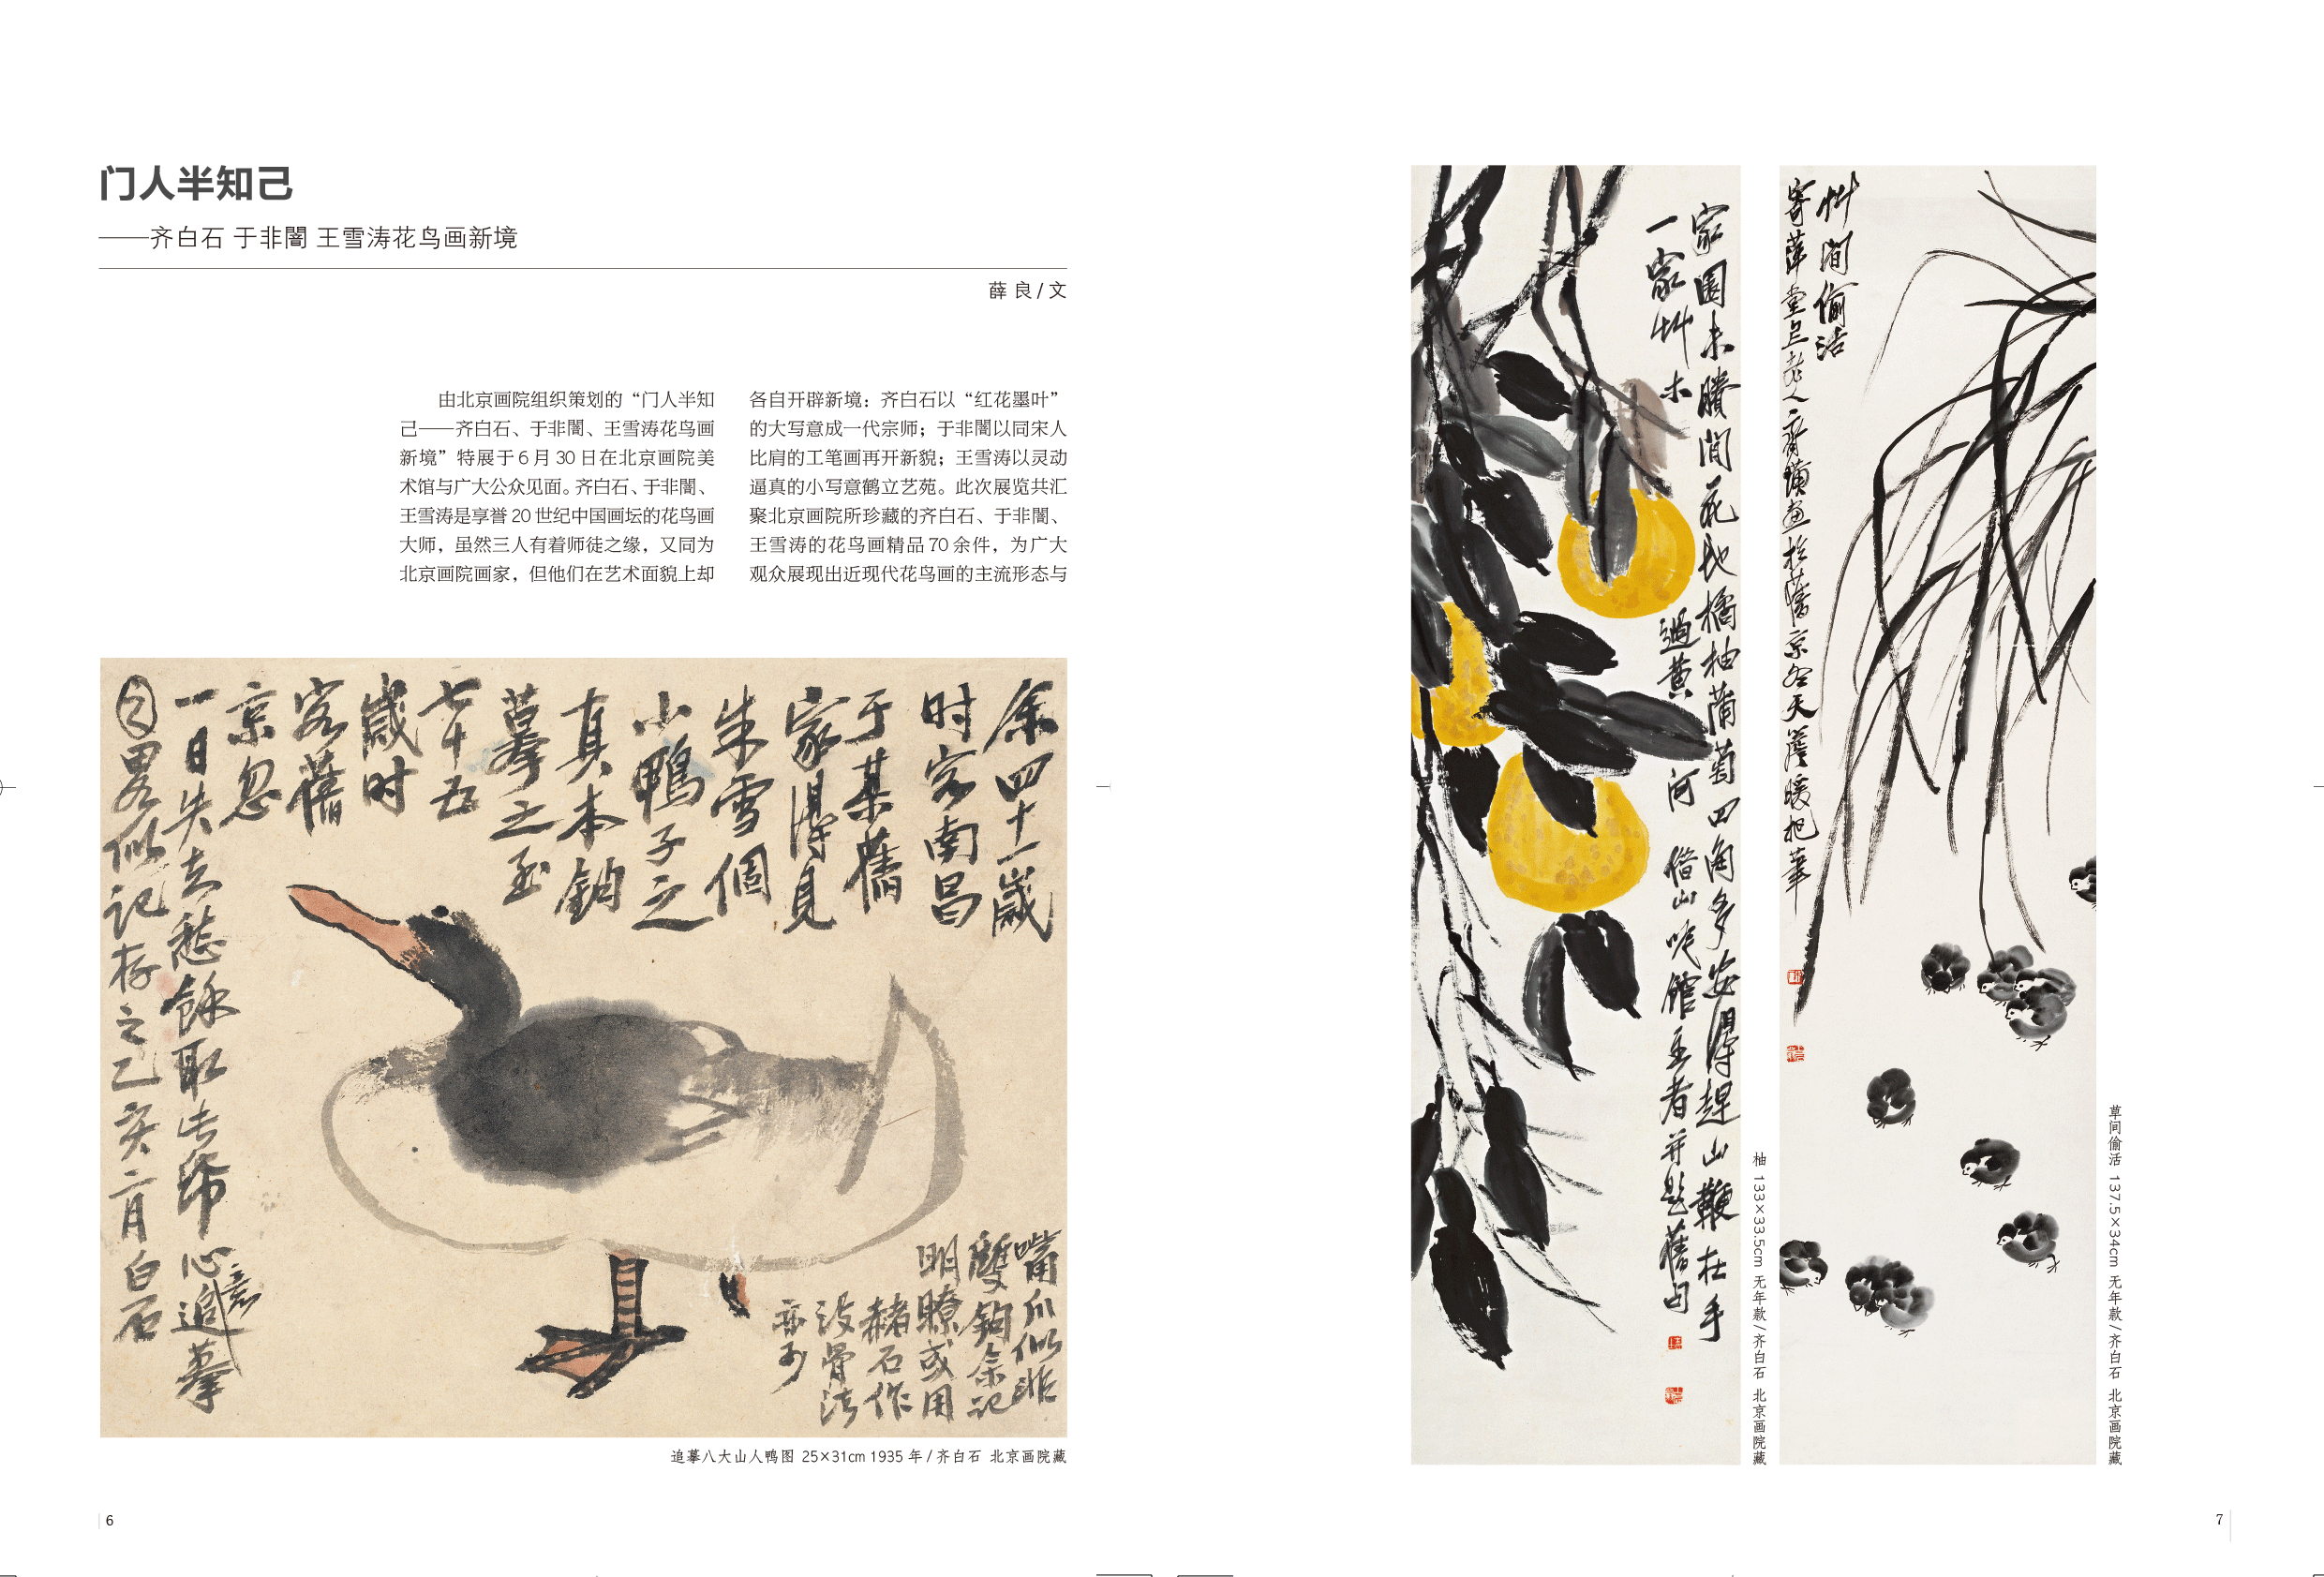 门人半知己
——齐白石 于非闇 王雪涛花鸟画新境
薛 良 / 文
由北京画院组织策划的“门人半知
己——齐白石、于非闇、王雪涛花鸟画
新境”特展于 6 月 30 日在北京画院美
术馆与广大公众见面。齐白石、于非闇、
王雪涛是享誉 20 世纪中国画坛的花鸟画
大师，虽然三人有着师徒之缘，又同为
北京画院画家，但他们在艺术面貌上却
各自开辟新境：齐白石以“红花墨叶”
的大写意成一代宗师；于非闇以同宋人
比肩的工笔画再开新貌；王雪涛以灵动
逼真的小写意鹤立艺苑。此次展览共汇
聚北京画院所珍藏的齐白石、于非闇、
王雪涛的花鸟画精品 70 余件，为广大
观众展现出近现代花鸟画的主流形态与
余四十一岁
时客南昌
于某旧
家得见
朱雪個
小鴨子之
真本鈎
摹之至
七十五
歲时
客舊
京忽
一日失去愁餘取去帋心追摹
意
之畧似记存之乙亥二月白石
嘴爪似非
雙鉤余记
明瞭或用
赭石作
没骨法
亦可
追摹八大山人鸭图 25×31cm 1935 年 / 齐白石 北京画院藏
6
家園未賸閒花地橘柚葡萄四角多安得趕山鞭在手
一家艸木過黄河 借山吟館主者并題舊句
柚 133×33.5cm 无年款 / 齐白石 北京画院藏
艸間偷活
寄萍堂上老人齊璜画于舊京冬天
草间偷活 137.5×34cm 无年款 / 齐白石 北京画院藏
7